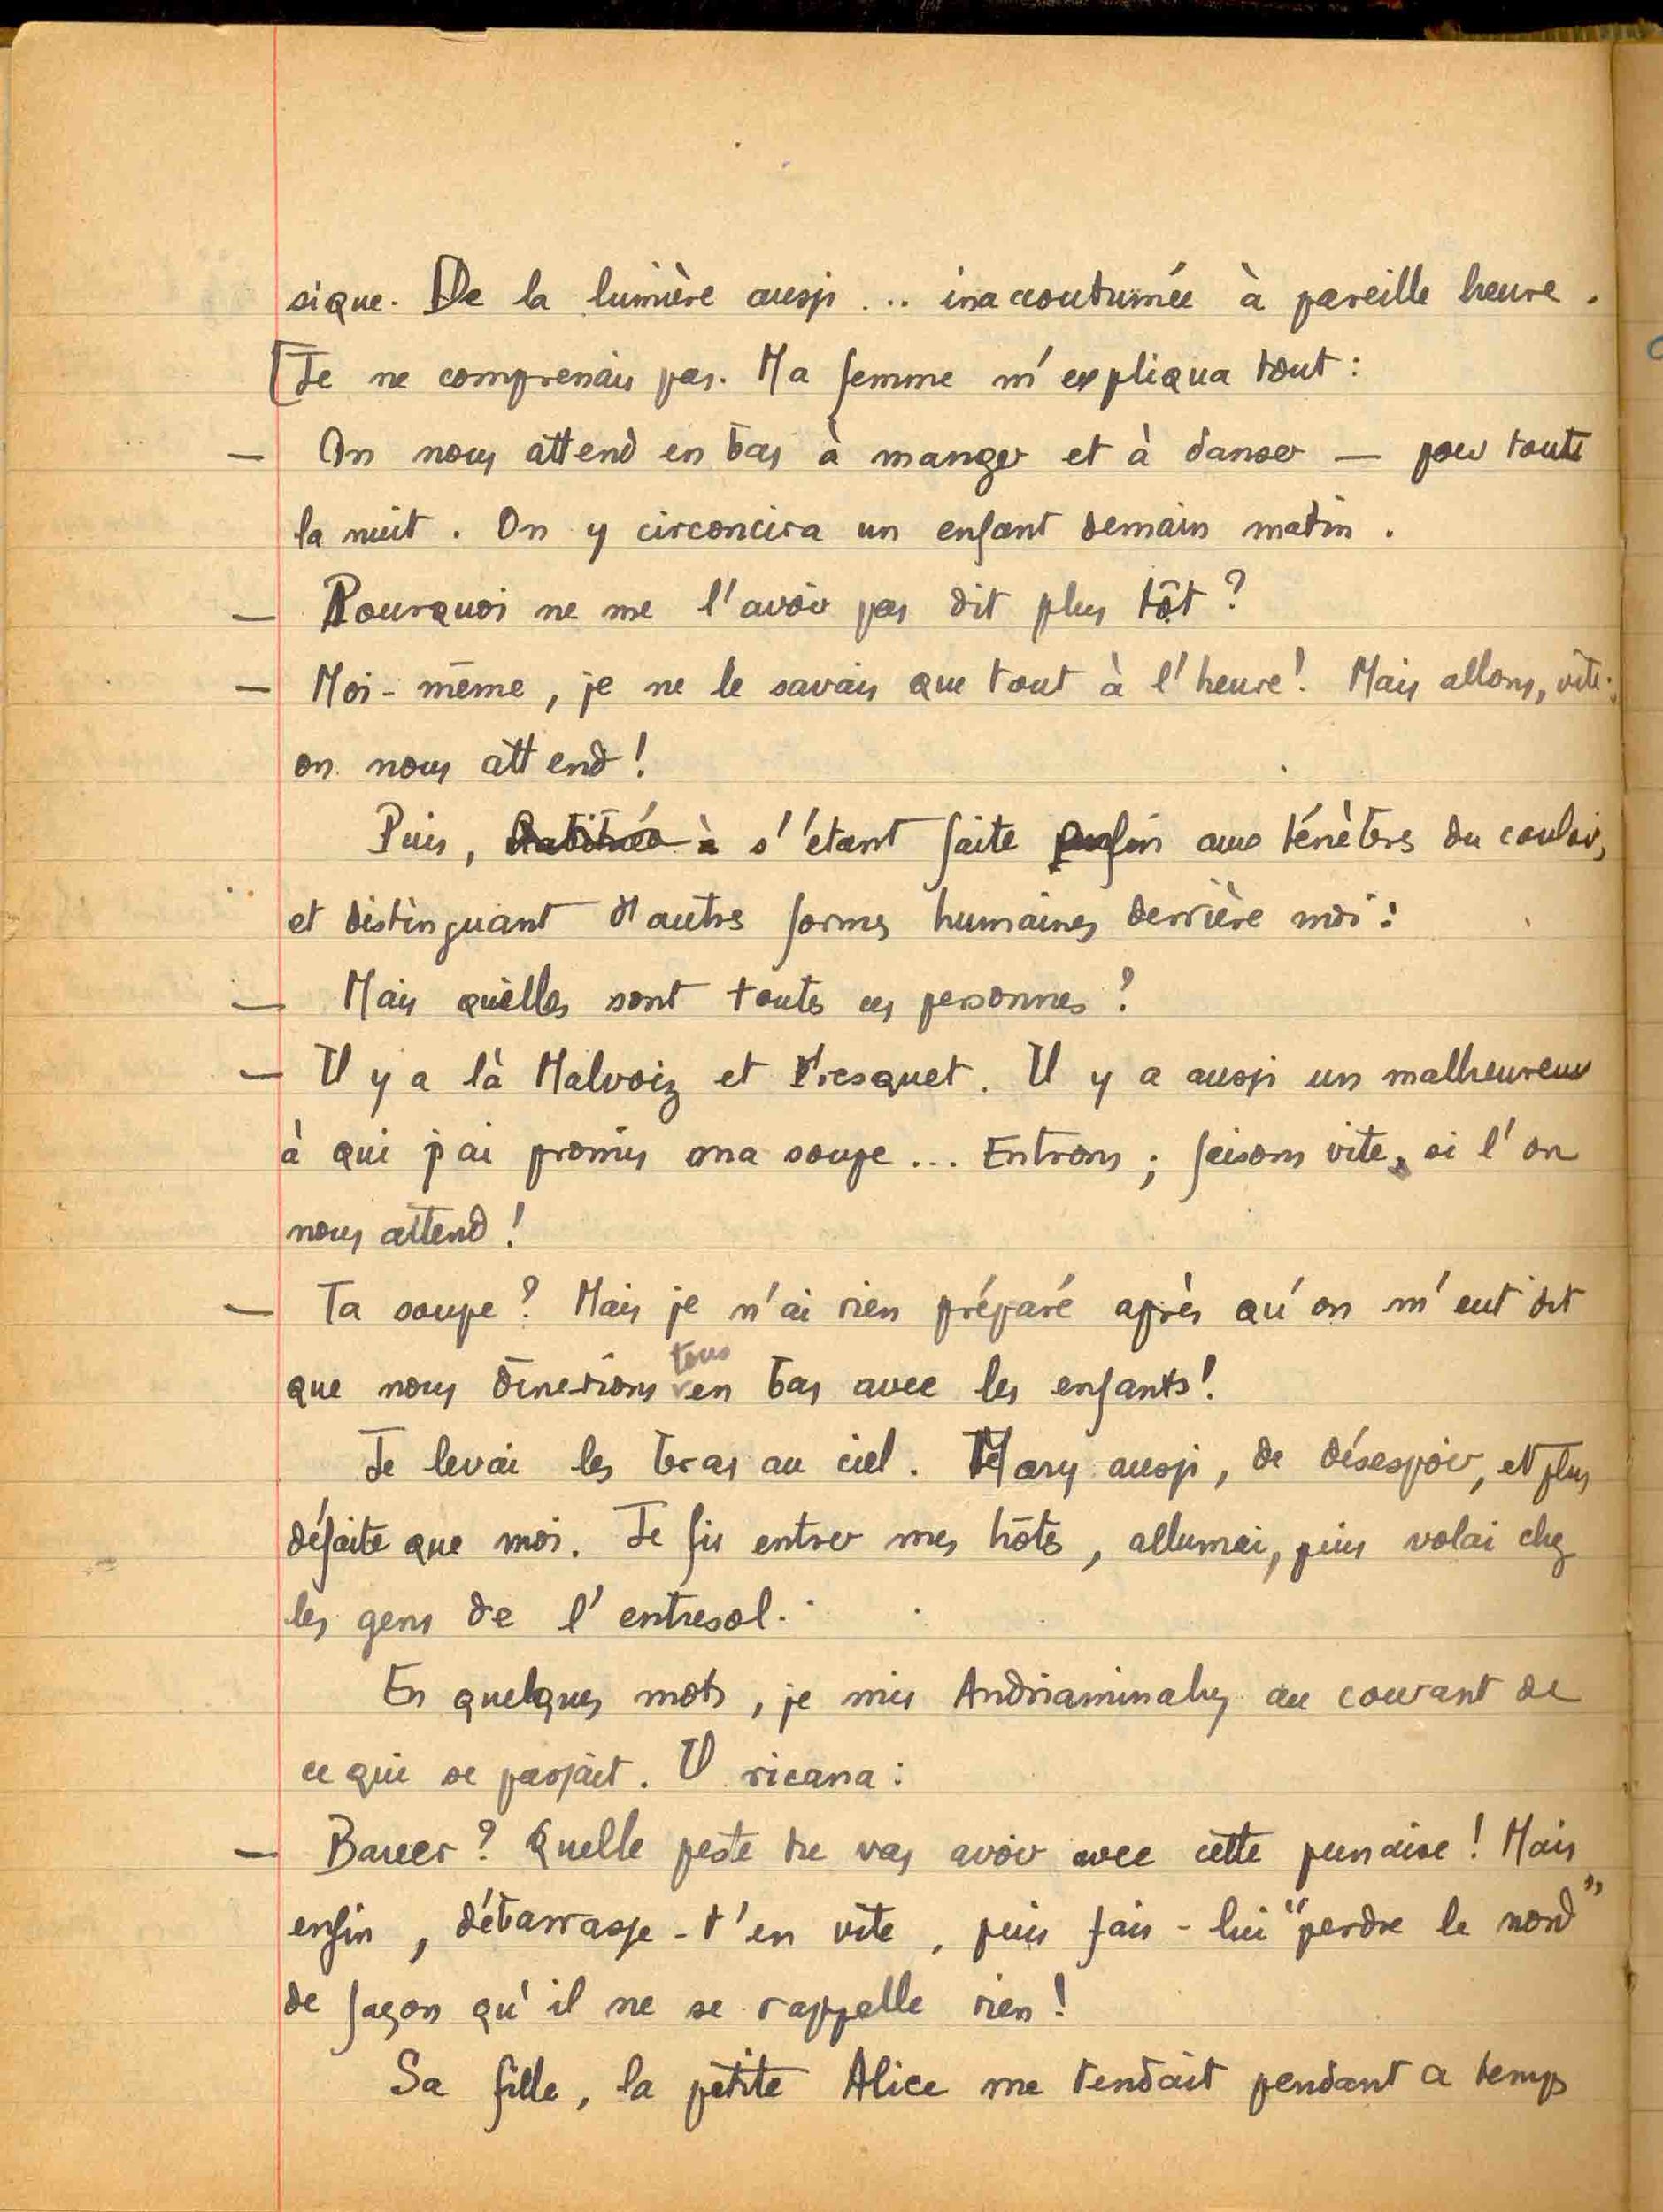 sique. De la lumière aussi ... inaccoutumée à pareille heure.
[Je ne comprenais pas. Ma femme m'expliqua tout :
— On nous attend en bas à manger et à danser — pour toute
la nuit. On y circoncira un enfant demain matin.
— Pourquoi ne me l'avoir pas dit plus tôt ?
— Moi-même, je ne le savais que tout à l'heure ! Mais allons, vite :
on nous attend !
Puis, s'étant faite enfin aux ténèbres du couloir,
et distinguant d'autres formes humaines derrière moi :
— Mais quelles sont toutes ces personnes ?
— Il y a là Malvoiz et Fresquet. Il y a aussi un malheureux
à qui j'ai promis ma soupe ... Entrons ; faisons vite, si l'on
nous attend !
— Ta soupe ? Mais je n'ai rien préparé après qu'on m'eut dit
que nous dînerions tous en bas avec les enfants !
Je levai les bras au ciel. Mary aussi, de désespoir, et plus
défaite que moi. Je fis entrer mes hôtes, allumai, puis volai chez
les gens de l'entresol.
En quelques mots, je mis Andriaminahy au courant de
ce qui se passait. Il ricana :
— Bauer ? Quelle peste tu vas avoir avec cette punaise ! Mais
enfin, débarrasse-t'en vite, puis fais-lui "perdre le nord"
de façon qu'il ne se rappelle rien !
Sa fille, la petite Alice me tendait pendant ce temps